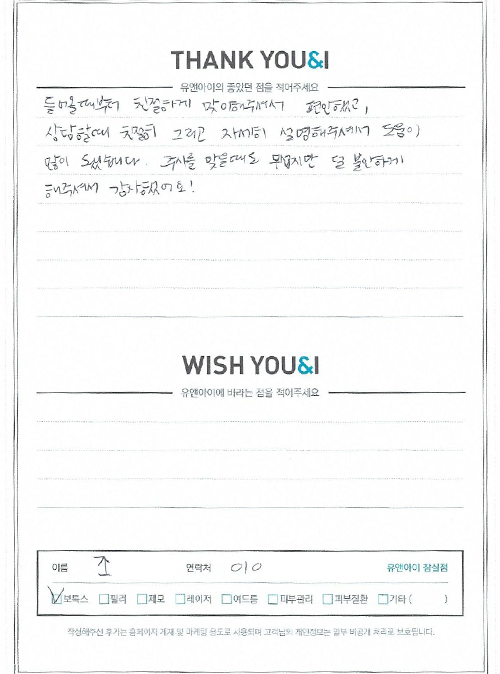 THANK YOU&I
유앤아이의 좋았던 점을 적어주세요
들어올때부터 친절하게 맞이해주셔서 편안했고,
상담할때 친절히 그리고 자세히 설명해주셔서 도움이
많이 됐습니다. 주사를 맞을때도 무섭지만 덜 불안하게
해주셔서 감사했어요!
WISH YOU&I
유앤아이에 바라는 점을 적어주세요
이름 조 연락처 010 유앤아이 잠실점
보톡스 필러 제모 레이저 여드름 피부관리 피부질환 기타 ( )
작성해주신 후기는 홈페이지 게재 및 마케팅 용도로 사용되며 고객님의 개인정보는 일부 비공개 처리로 보호됩니다.